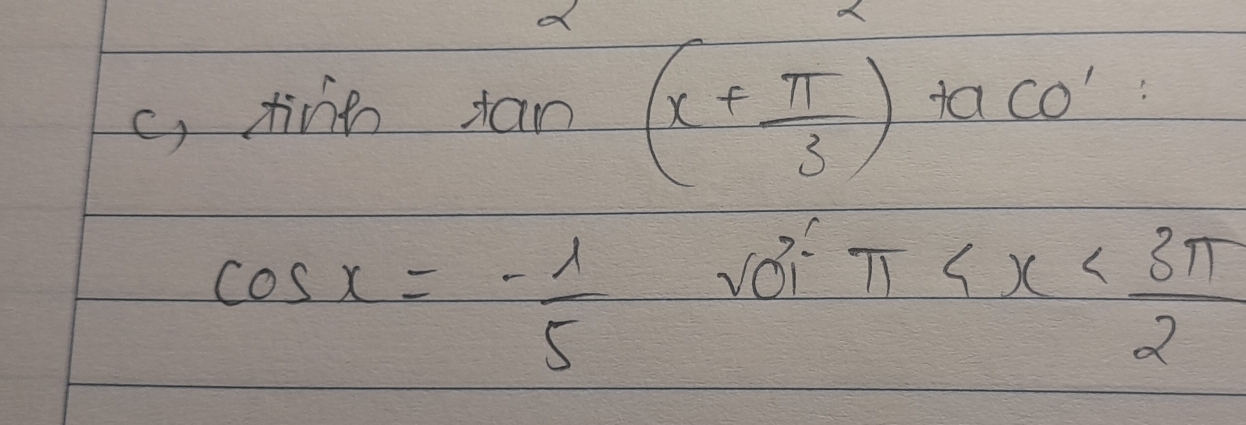 2 2
c, tính tan (x + π/3) ta có :
cos x = - 1/5 với π < x < 3π/2